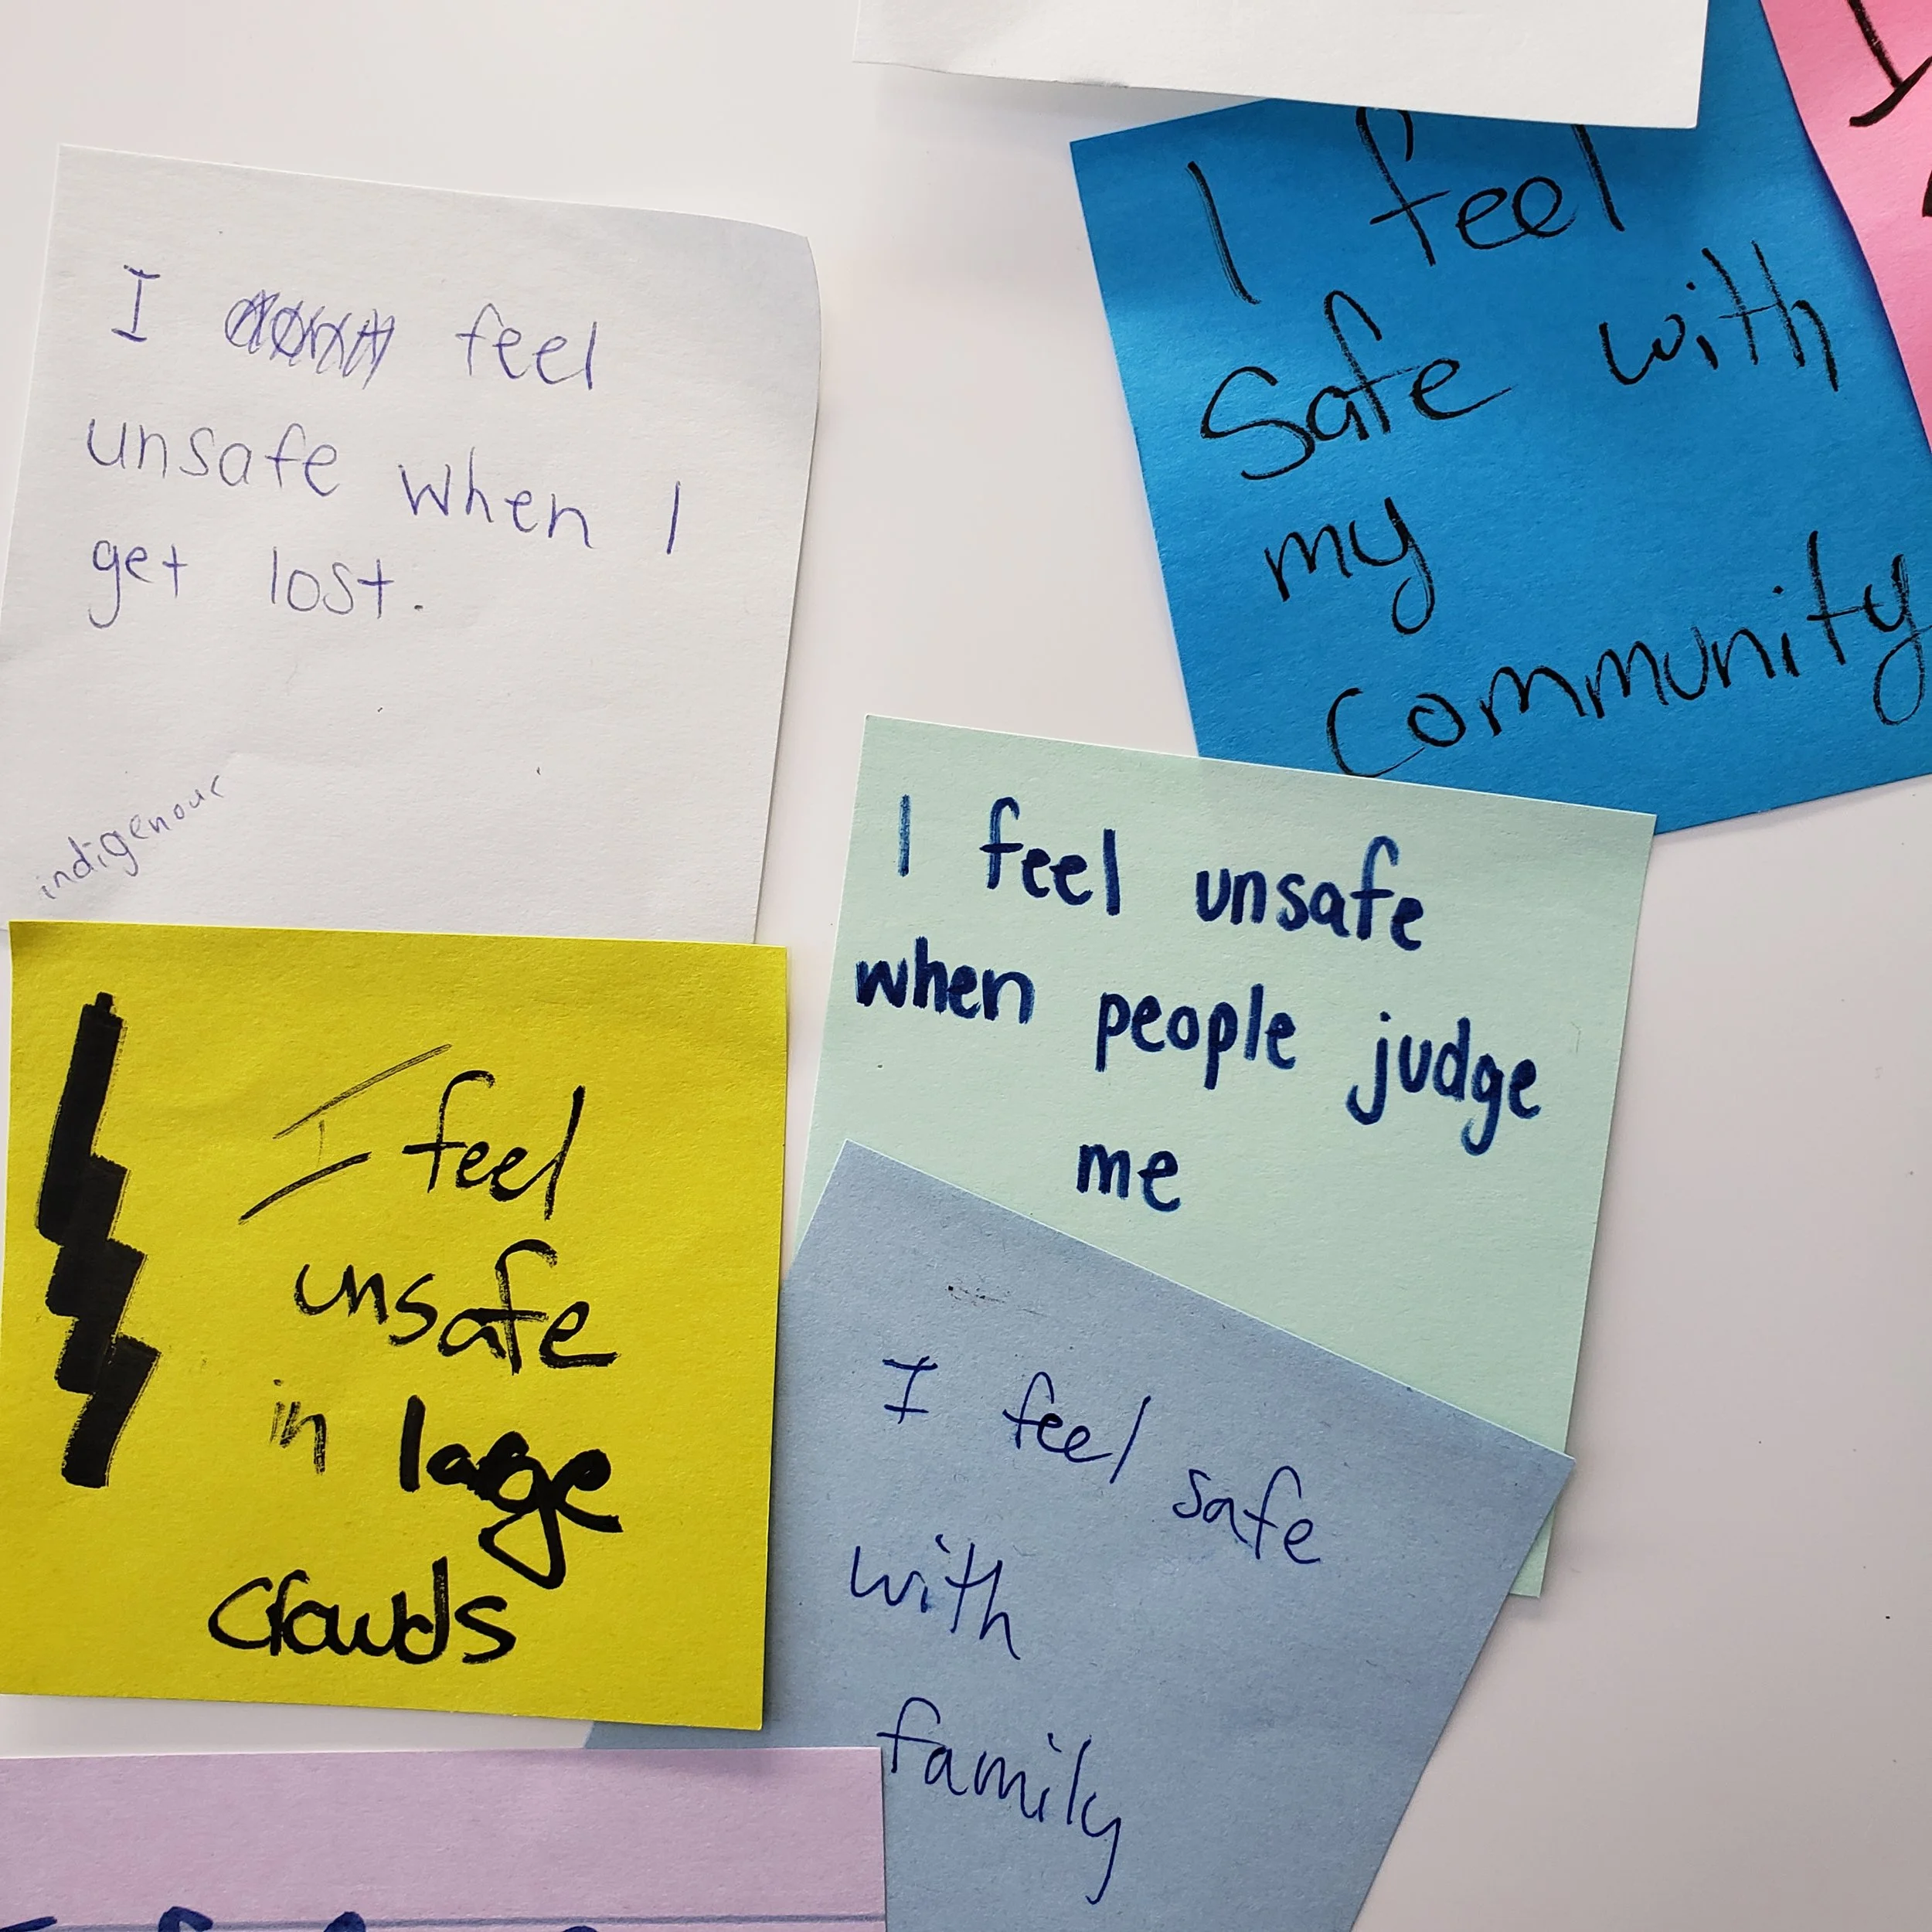 I feel
unsafe when I
get lost.
indigenous
I feel
safe with
my
community
I feel unsafe
when people judge
me
I feel
unsafe
in lage
crowds
I feel safe
with
family